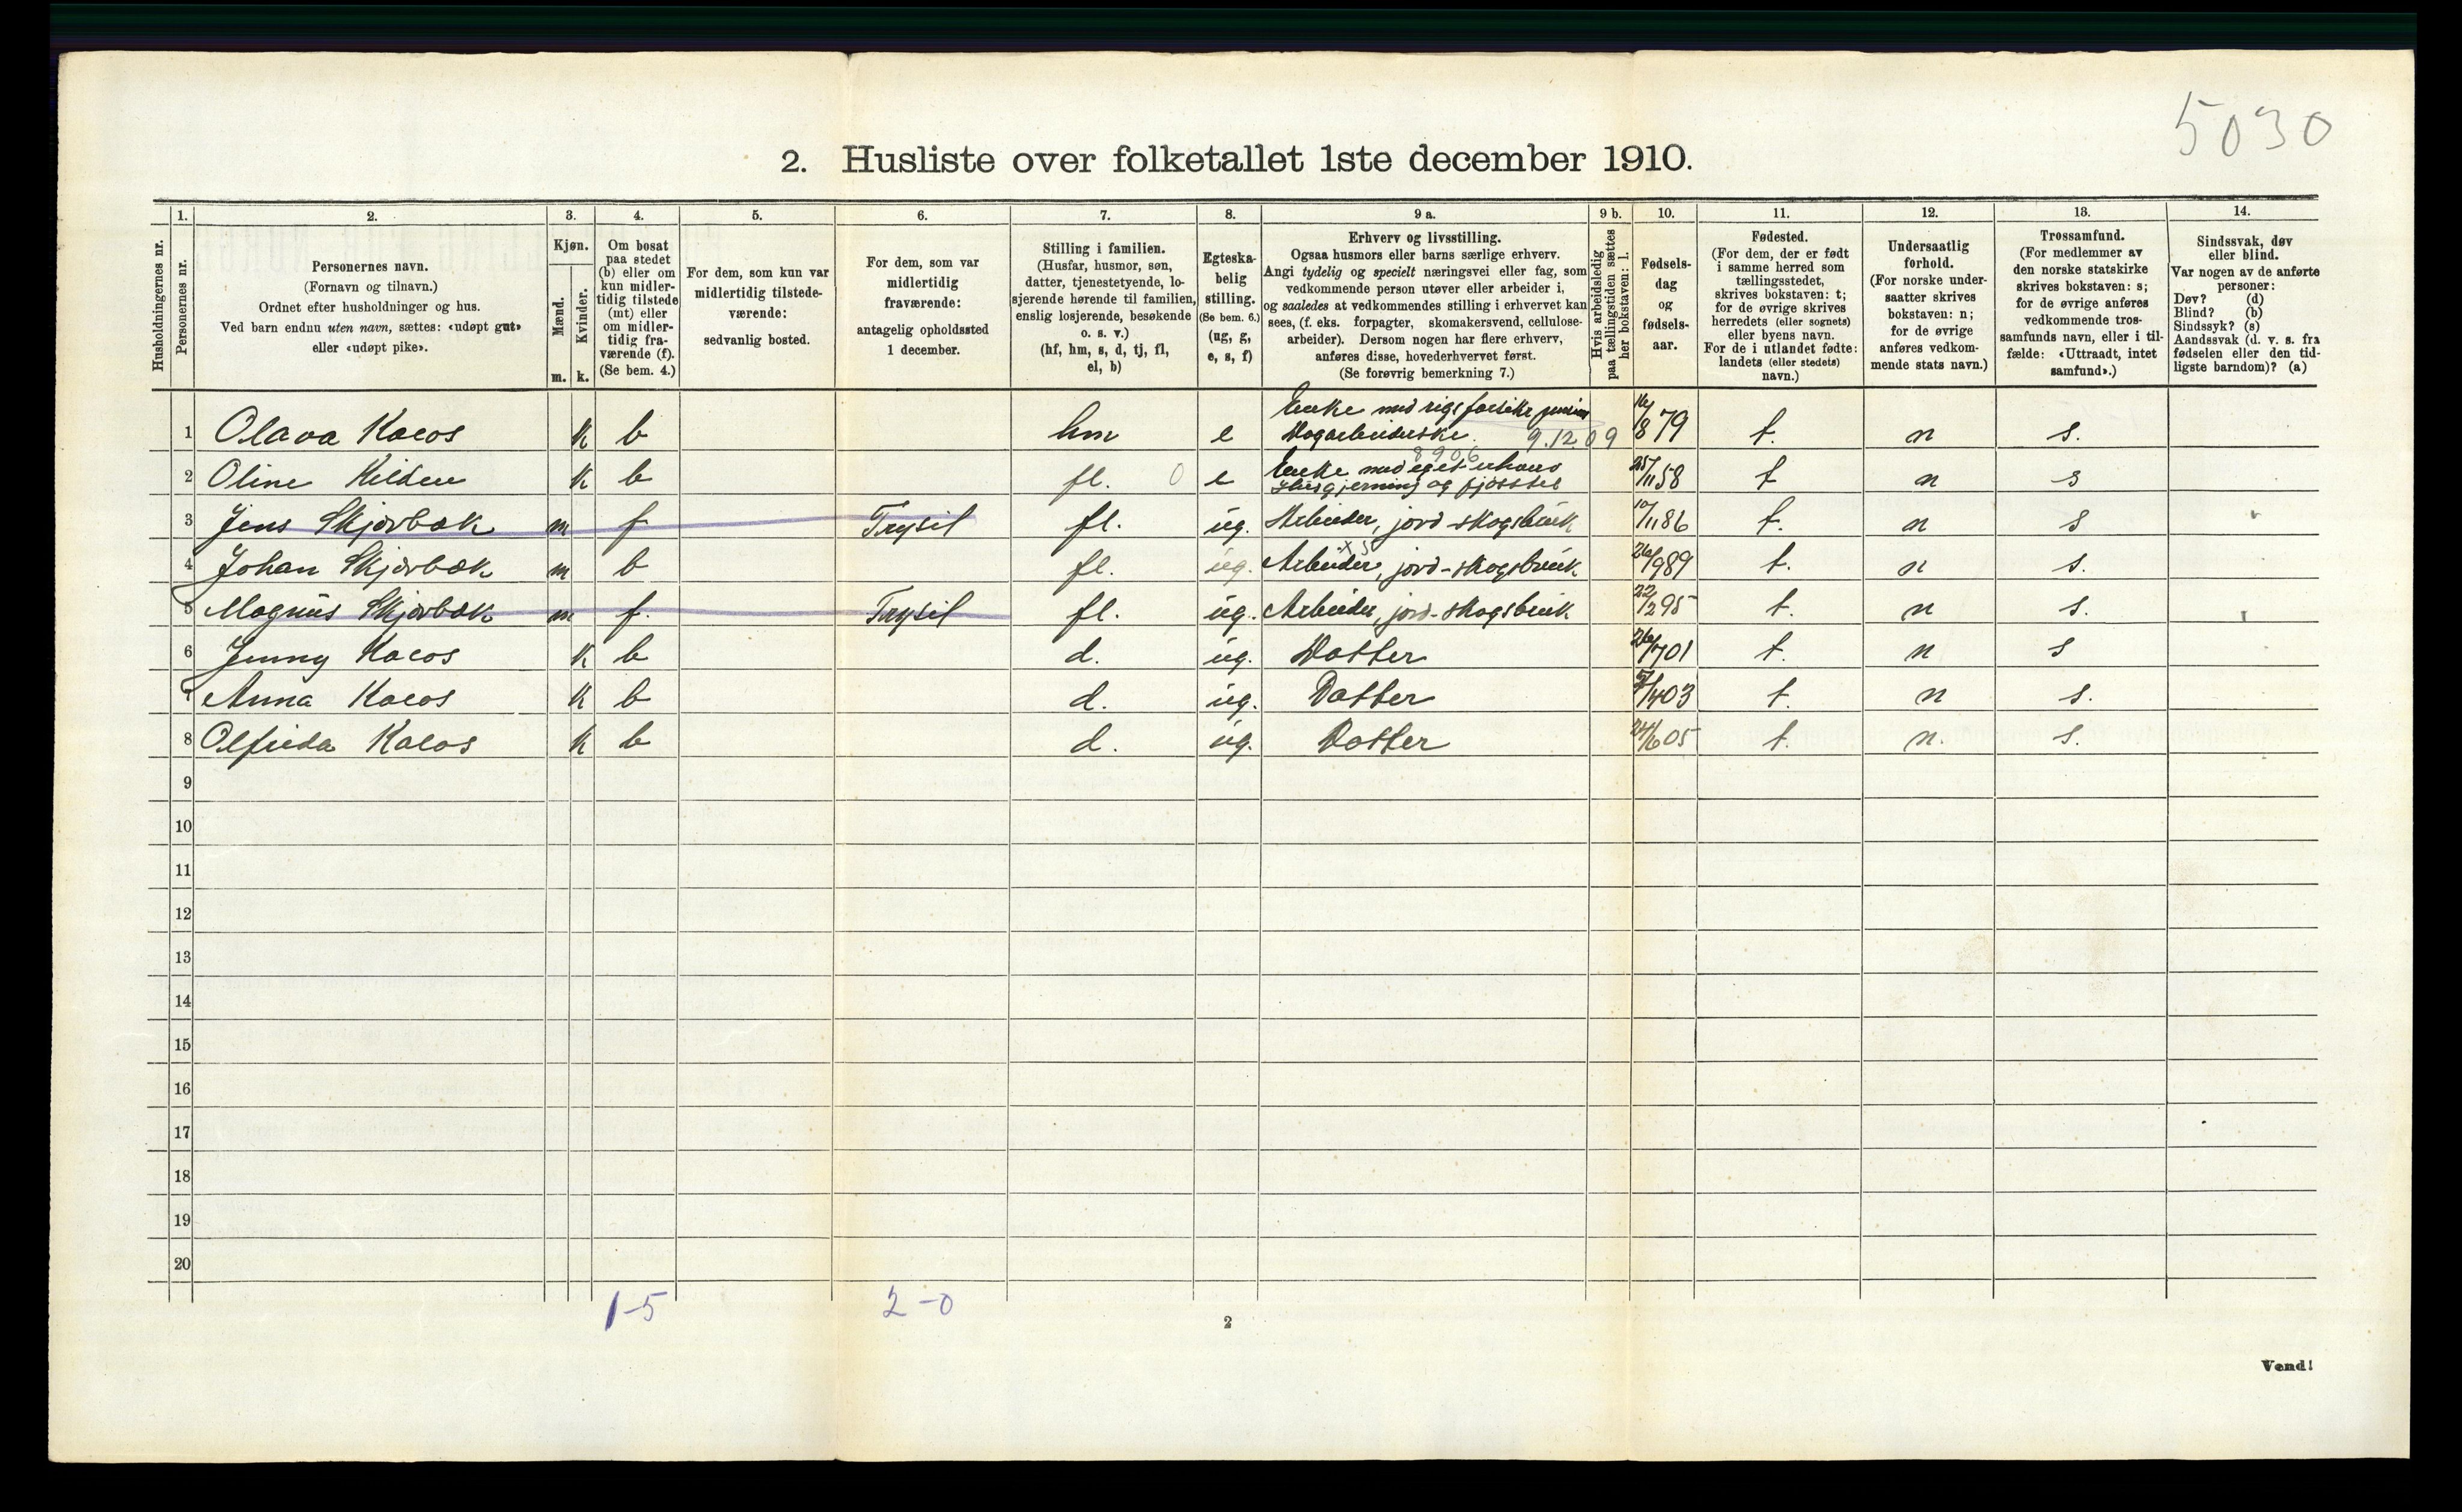 5030
2. Husliste over folketallet 1ste december 1910.
Husholdningernes nr.
1.
Personernes nr.
2.
Personernes navn.
(Fornavn og tilnavn.)
Ordnet efter husholdninger og hus.
Ved barn endnu uten navn, sættes: «udøpt gut»
eller «udøpt pike».
3.
Kjøn.
Mænd.
Kvinder.
m. k.
4.
Om bosat
paa stedet
(b) eller om
kun midler-
tidig tilstede
(mt) eller
om midler-
tidig fra-
værende (f).
(Se bem. 4.)
5.
For dem, som kun var
midlertidig tilstede-
værende:
sedvanlig bosted.
6.
For dem, som var
midlertidig
fraværende:
antagelig opholdssted
1 december.
7.
Stilling i familien.
(Husfar, husmor, søn,
datter, tjenestetyende, lo-
sjerende hørende til familien,
enslig losjerende, besøkende
o. s. v.)
(hf, hm, s, d, tj, fl,
el, b)
8.
Egteska-
belig
stilling.
(Se bem. 6.)
(ug, g,
e, s, f)
9 a.
Erhverv og livsstilling.
Ogsaa husmors eller barns særlige erhverv.
Angi tydelig og specielt næringsvei eller fag, som
vedkommende person utøver eller arbeider i,
og saaledes at vedkommendes stilling i erhvervet kan
sees, (f. eks. forpagter, skomakersvend, cellulose-
arbeider). Dersom nogen har flere erhverv,
anføres disse, hovederhvervet først.
(Se forøvrig bemerkning 7.)
9 b.
Hvis arbeidsledig
paa tællingstiden sættes
her bokstaven: l.
10.
Fødsels-
dag
og
fødsels-
aar.
11.
Fødested.
(For dem, der er født
i samme herred som
tællingsstedet,
skrives bokstaven: t;
for de øvrige skrives
herredets (eller sognets)
eller byens navn.
For de i utlandet fødte:
landets (eller stedets)
navn.)
12.
Undersaatlig
forhold.
(For norske under-
saatter skrives
bokstaven: n;
for de øvrige
anføres vedkom-
mende stats navn.)
13.
Trossamfund.
(For medlemmer av
den norske statskirke
skrives bokstaven: s;
for de øvrige anføres
vedkommende tros-
samfunds navn, eller i til-
fælde: «Uttraadt, intet
samfund».)
14.
Sindssvak, døv
eller blind.
Var nogen av de anførte
personer:
Døv? (d)
Blind? (b)
Sindssyk? (s)
Aandssvak (d. v. s. fra
fødselen eller den tid-
ligste barndom)? (a)
Enke med rigsforsikr pension
1 Olava Kolos k b hm e Dagarbeiderske. 9.12.09 16/8 79 t. n s.
8906
Enke med eget erhverv
2 Oline Kilden k b fl. 0 e Husgjerning og fjøsstel 25/11 58 t n s
3 Jens Skjørbæk m f Trysil fl. ug. Arbeider, jord-skogsbruk 10/11 86 t. n s
4 Johan Skjørbæk m b fl. ug. Arbeider, jord-skogsbruk 26/9 89 t. n s.
5 Magnus Skjørbæk m f. Trysil fl. ug. Arbeider, jord-skogsbruk 22/2 95 t. n s.
6 Jenny Kolos k b d. ug. Datter 26/7 01 t. n s
7 Anna Kolos k b d. ug. Datter 5/4 03 t. n s.
8 Olfrida Kolos k b d. ug. Datter 24/6 05 t. n. s.
9
10
11
12
13
14
15
16
17
18
19
20
1-5 2-0
2
Vend!